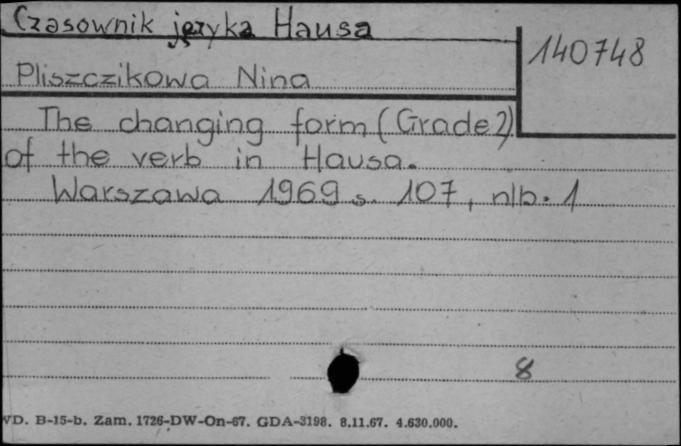 Czasownik języka Hausa
140748
Pliszczikowa Nina
The changing form (Grade 2)
of the verb in Hausa.
Warszawa 1969 s. 107, nlb. 1
8
VD. B-15-b. Zam. 1726-DW-On-67. GDA-3198. 8.11.67. 4.630.000.